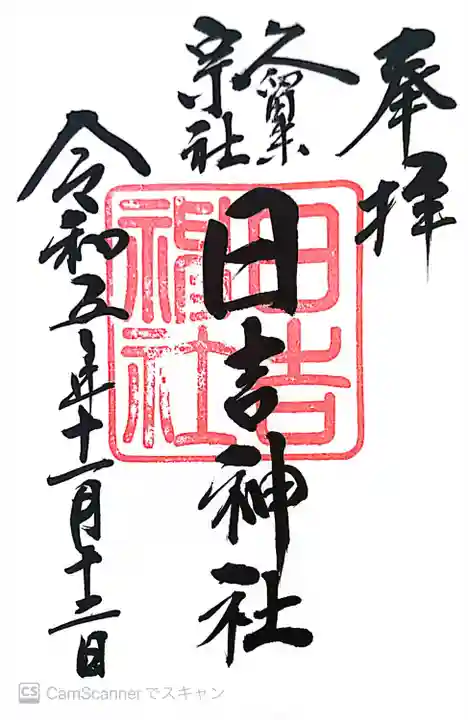 奉拝
久留米
宗社
日吉神社
日吉
神社
令和五年十一月十二日
CS CamScannerでスキャン